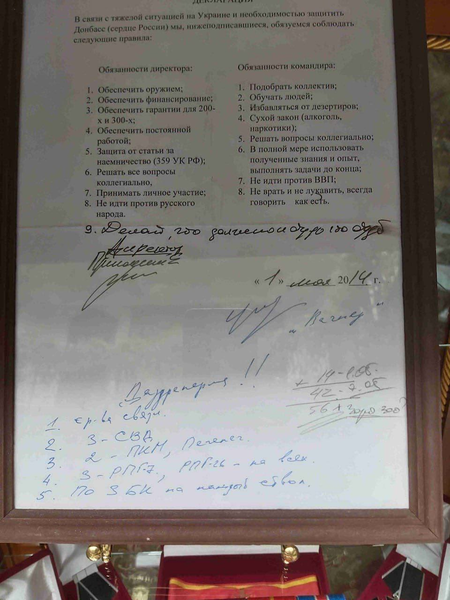 ДЕКЛАРАЦИЯ
В связи с тяжелой ситуацией на Украине и необходимостью защитить
Донбасс (сердце России) мы, нижеподписавшиеся, обязуемся соблюдать
следующие правила:
Обязанности директора:
1. Обеспечить оружием;
2. Обеспечить финансирование;
3. Обеспечить гарантии для 200-
х и 300-х;
4. Обеспечить постоянной
работой;
5. Защита от статьи за
наемничество (359 УК РФ);
6. Решать все вопросы
коллегиально,
7. Принимать личное участие;
8. Не идти против русского
народа.
Обязанности командира:
1. Подобрать коллектив;
2. Обучать людей;
3. Избавляться от дезертиров;
4. Сухой закон (алкоголь,
наркотики);
5. Решать вопросы коллегиально;
6. В полной мере использовать
полученные знания и опыт,
выполнять задачи до конца;
7. Не идти против ВВП;
8. Не врать и не лукавить, всегда
говорить как есть.
9. Делай, что должно и будь что будет
Директор
Пригожин Е
« 1 » мая 2014 г.
"Вагнер"
!!
1. ср-ва связи.
2. 3 - СВД
3. 2 - ПКМ, Печенег.
4. 3 - РПГ-7, РПГ-26 - на всех.
5. По 3 БК на каждый ствол.
14 -
42 -
561